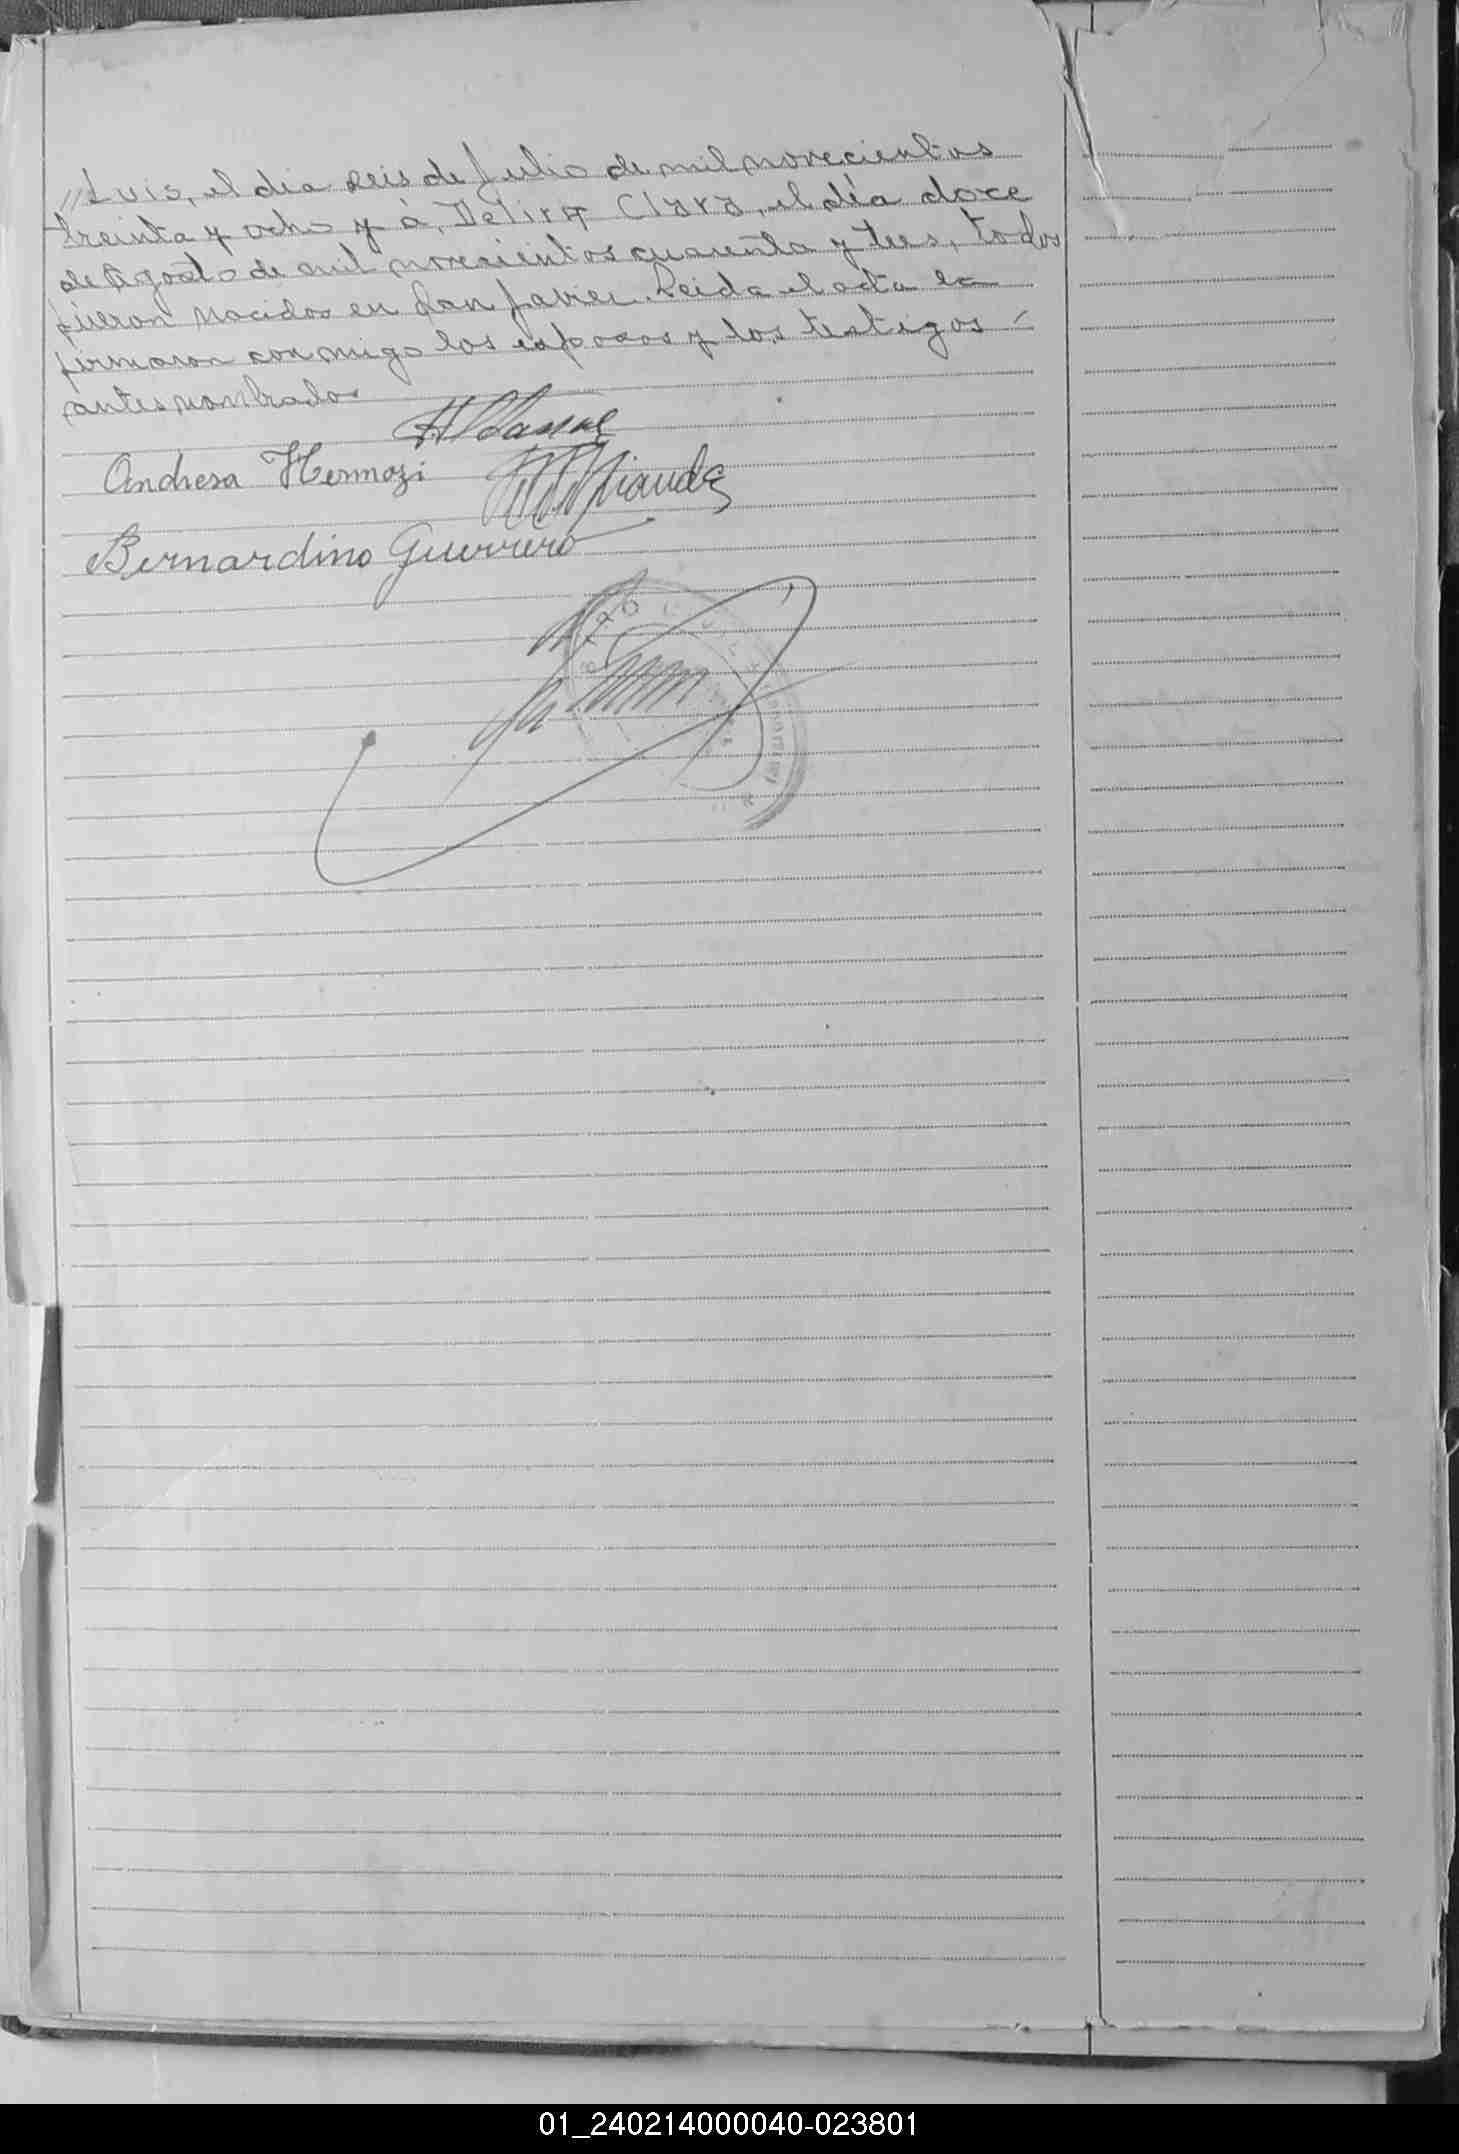 // Luis, el dia seis de Julio de mil novecientos
treinta y ocho y á, Delira Clara, el día doce
de Agosto de mil novecientos cuarenta y tres, todos
fueron nacidos en San Javier. Leida el acta la
firmaron conmigo los esposos y los testigos
antes nombrados
Andresa Hermozi
Miranda
Bernardino Guerrero
01_240214000040-023801